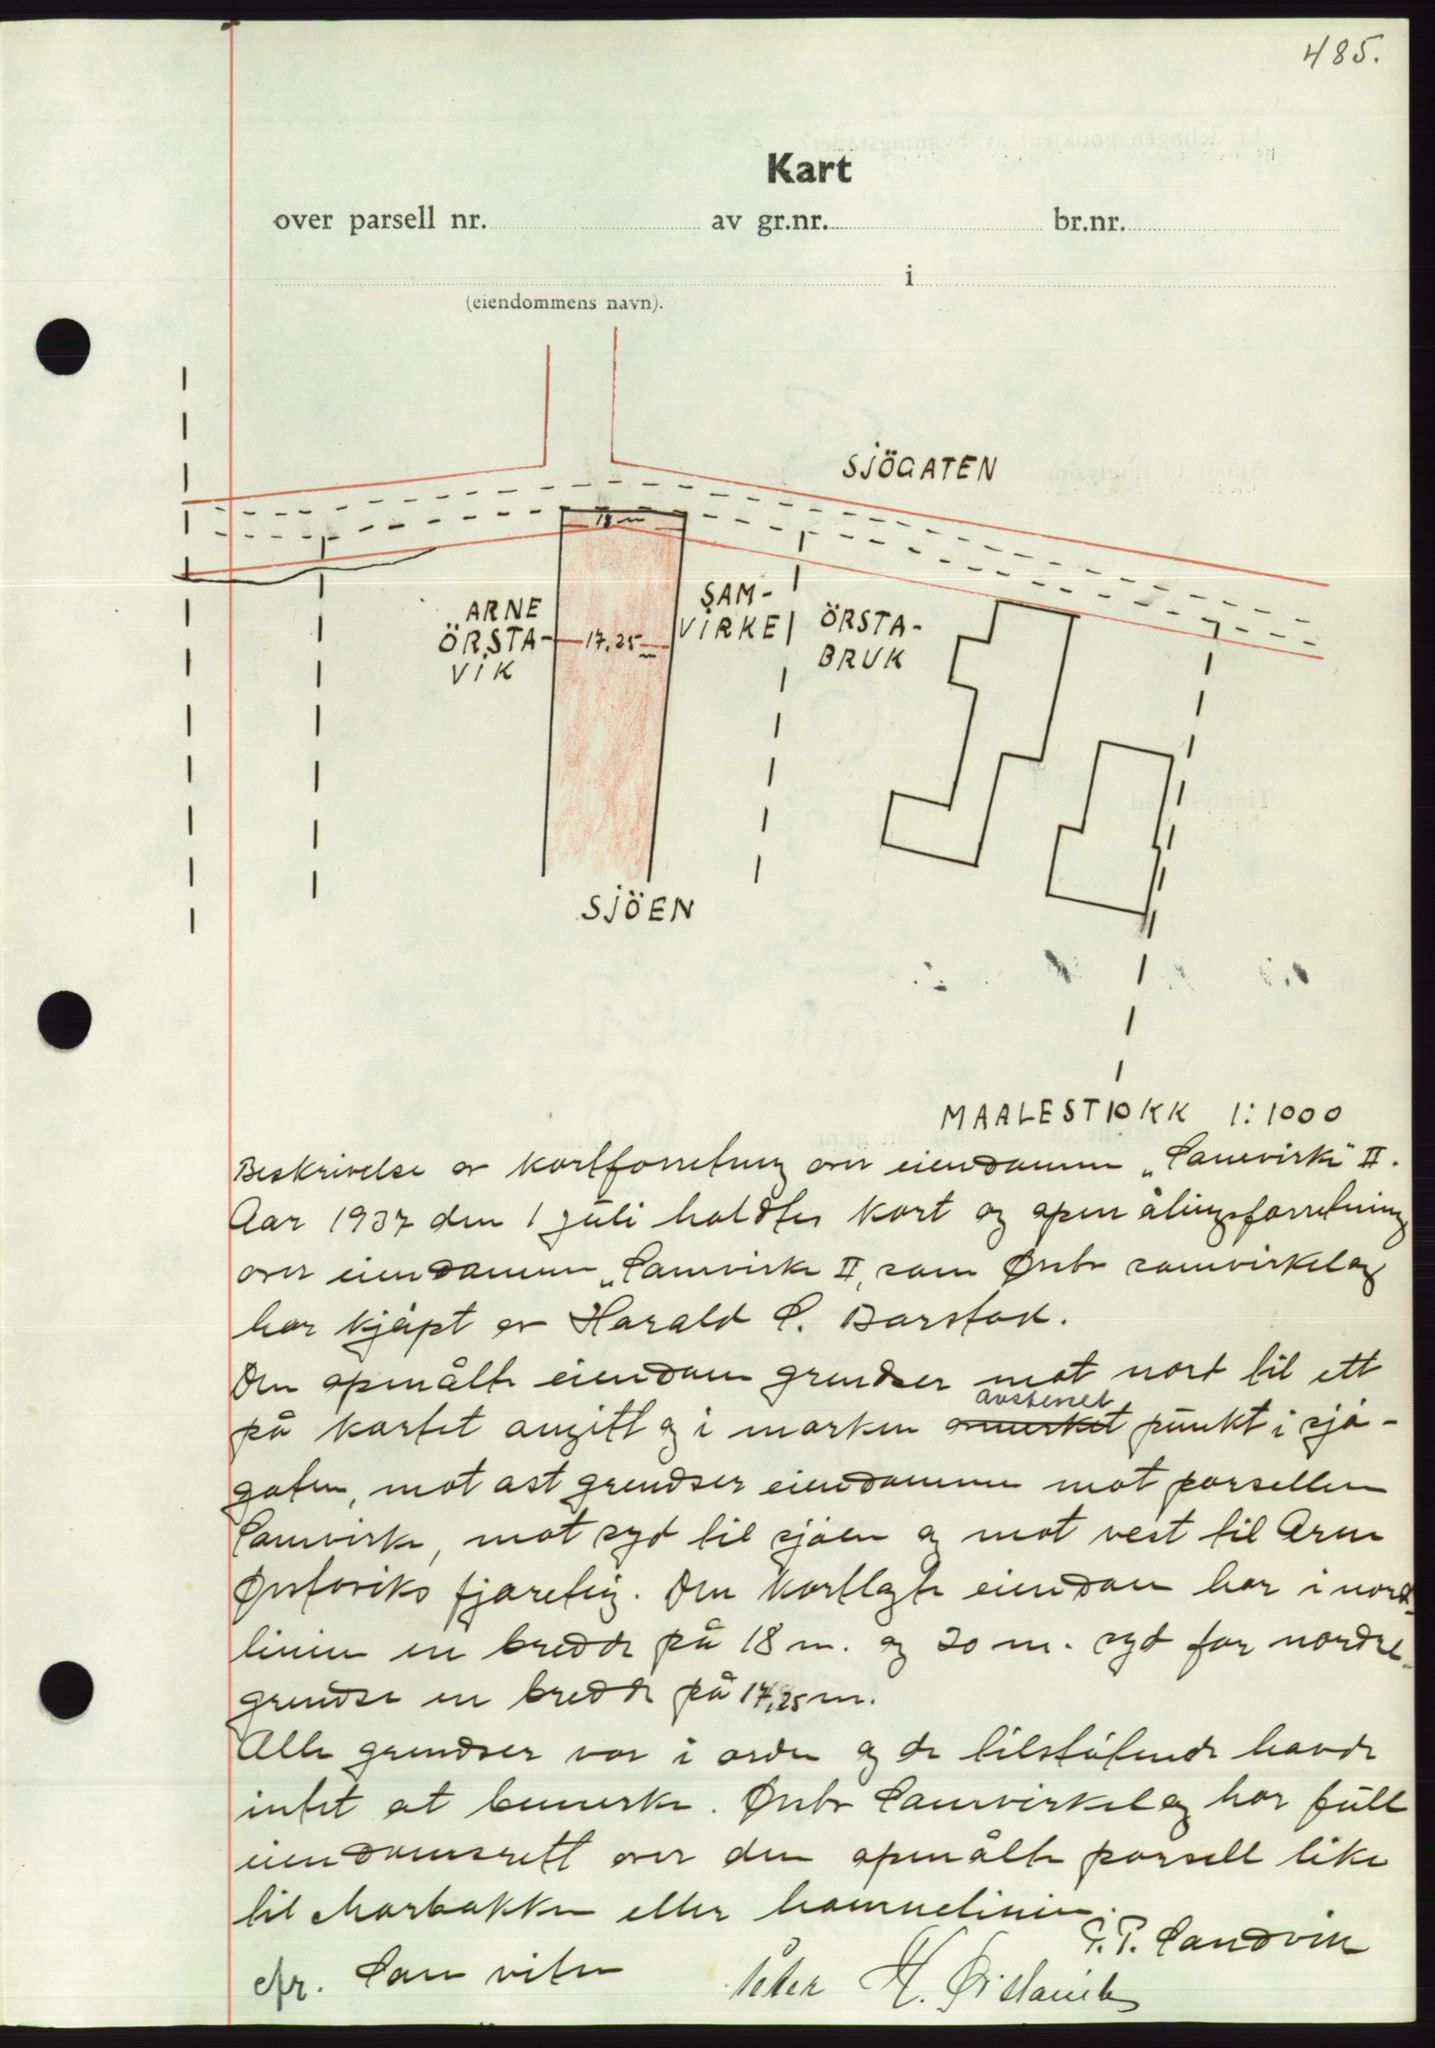 485.
Kart
over parsell nr. av gr.nr. br.nr.
i
(eiendommens navn).
SJÖGATEN
18 m
ARNE
ÖRSTA-
VIK
17.25 m
SAM-
VIRKE
ÖRSTA-
BRUK
SJÖEN
MAALESTOKK 1:1000
Beskrivelse av kartforretning over eiendommen „Samvirke" II.
Aar 1937 den 1 juli holdtes kart og opmålingsforretning
over eiendommen „Samvirke II, som Ørsta samvirkelag
har kjøpt av Harald S. Barstad.
Den opmålte eiendom grendser mot nord til ett
på kartet angitt og i marken avstenet punkt i sjø-
gaten, mot øst grendser eiendommen mot parsellen
Samvirke, mot syd til sjøen og mot vest til Arne
Ørstaviks fjæreteig. Den kartlagte eiendom har i nord-
linien en bredde på 18 m. og 20 m. syd for nordre-
grendse en bredde på 17,25 m.
Alle grendser var i orden og de tilstøtende havde
intet at bemerke. Ørsta Samvirkelag har full
eiendomsrett over den opmålte parsell like
til marbakken eller havnelinien.
P. P. Sandvik
cfr. Som viten Peter H. Ørstavik